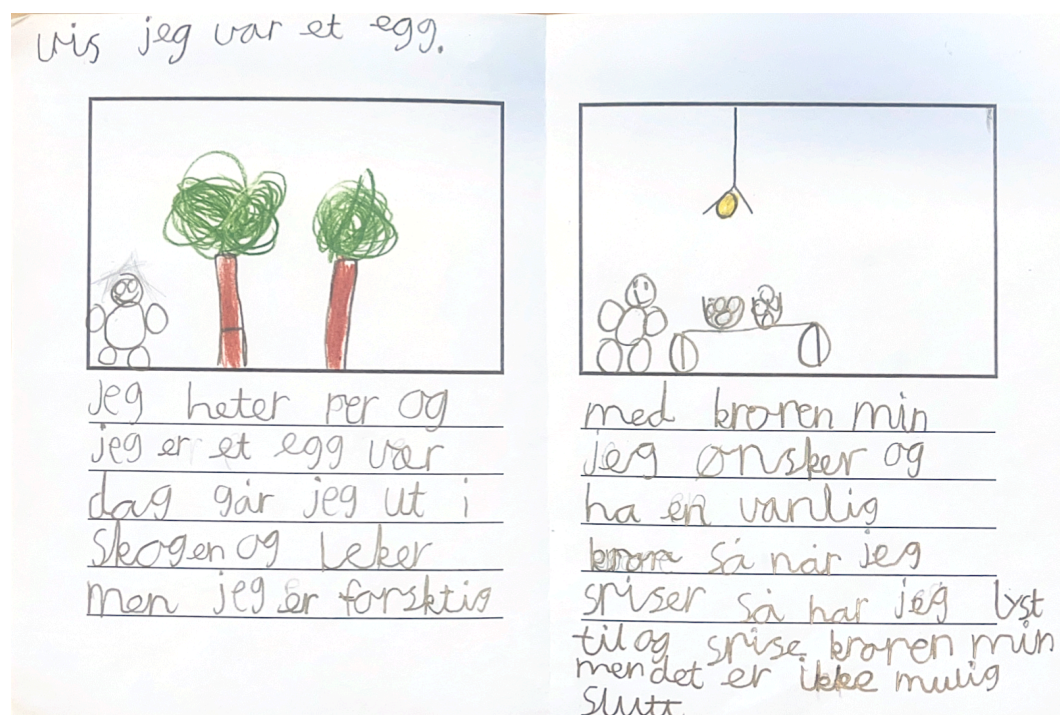 vis jeg var et egg.
jeg heter per og
jeg er et egg vær
dag går jeg ut i
skogen og leker
men jeg er forsktig
med kropen min
jeg ønsker og
ha en vanlig
så når jeg
spiser så har jeg lyst
til og spise kropen min
men det er ikke mulig
slutt